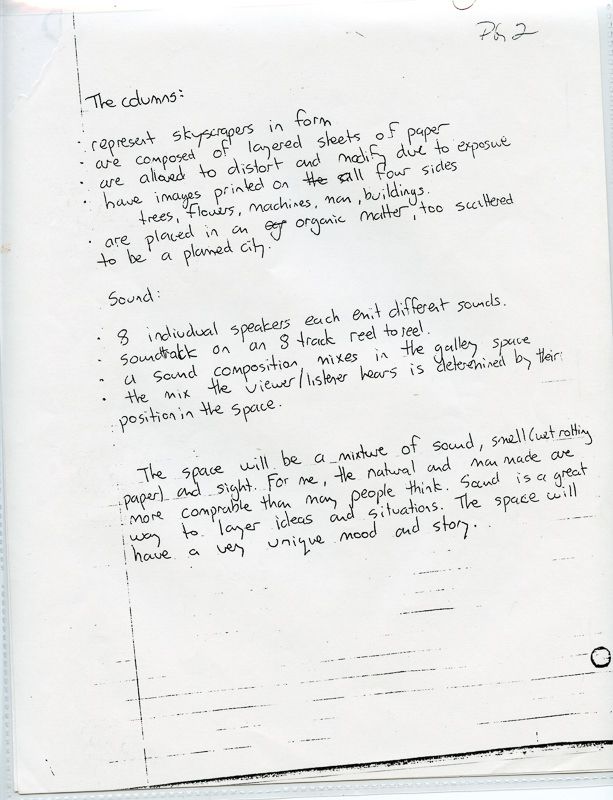 Pg 2
The columns:
· represent skyscrapers in form
· are composed of layered sheets of paper
· are allowed to distort and modify due to exposure
· have images printed on the all four sides
trees, flowers, machines, man, buildings.
· are placed in an organic matter, too scattered
to be a planned city.
Sound:
· 8 individual speakers each emit different sounds.
· soundtrack on an 8 track reel to reel.
· a sound composition mixes in the galley space
· the mix the viewer/listener hears is determined by their
position in the space.
The space will be a mixture of sound, smell (wet rotting
paper) and sight. For me, the natural and man made are
more comprable than many people think. Sound is a great
way to layer ideas and situations. The space will
have a very unique mood and story.